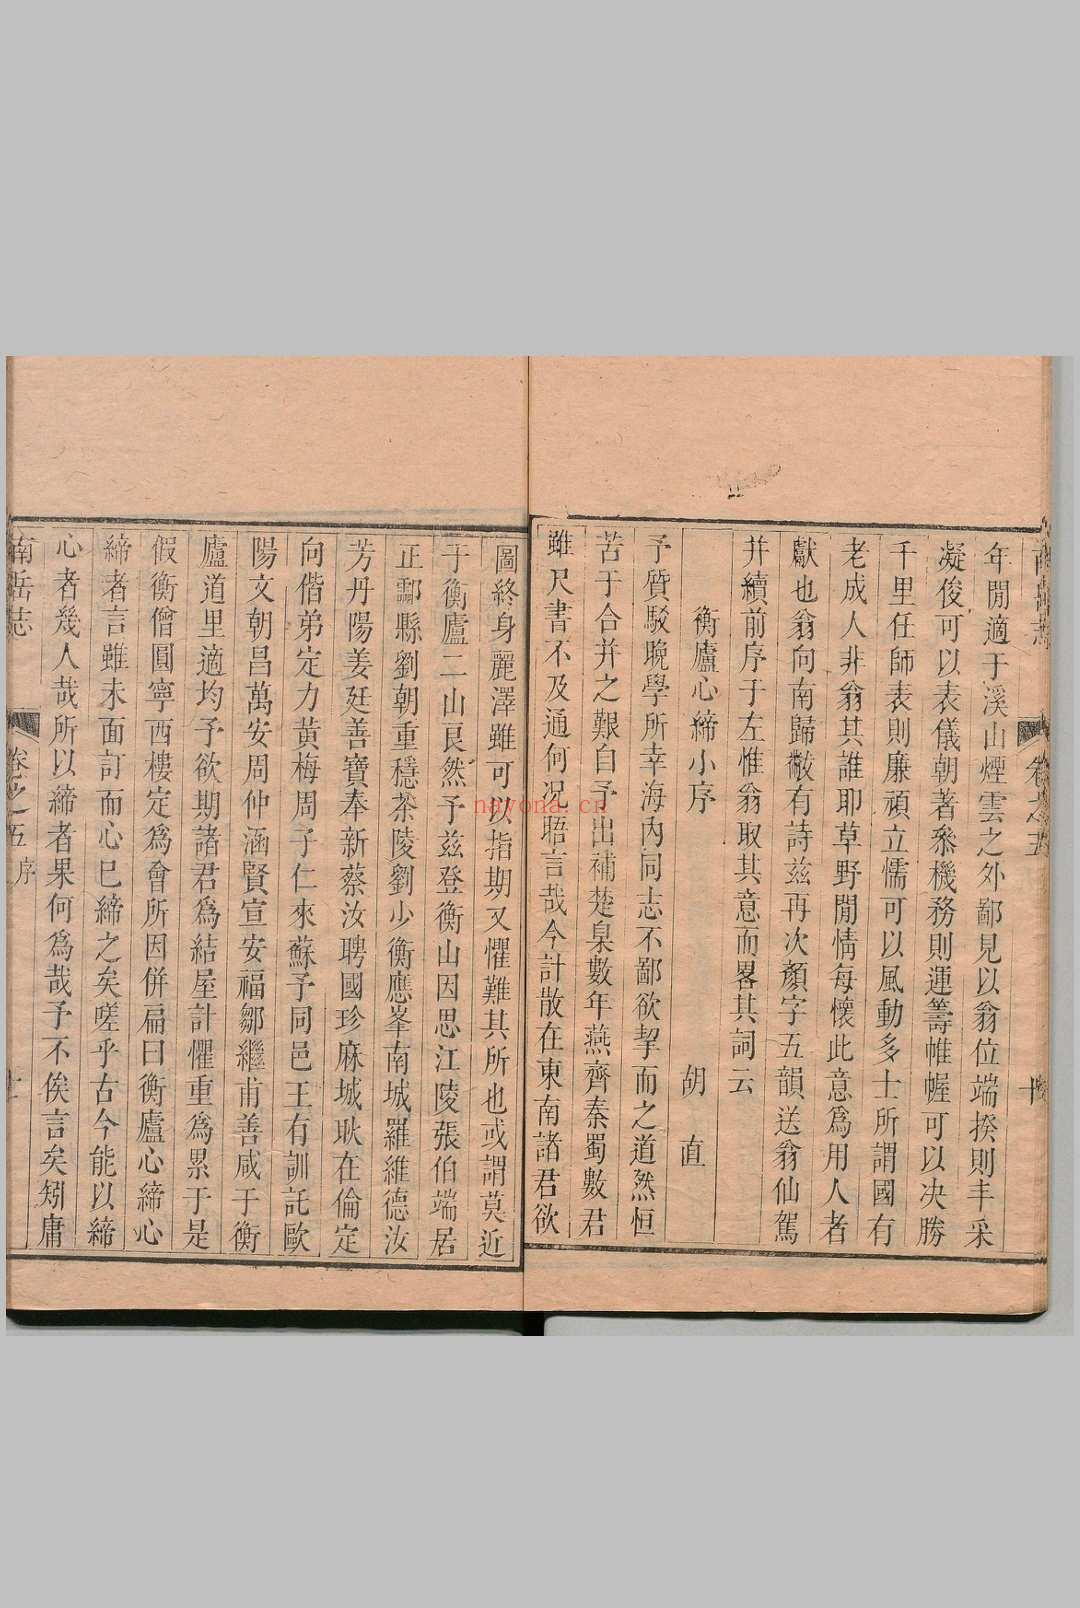 年閒適于溪山煙雲之外鄙見以翁位端揆則丰采
凝俊可以表儀朝著叅機務則運籌帷幄可以决勝
千里任師表則廉頑立懦可以風動多士所謂國有
老成人非翁其誰耶草野閒情每懷此意爲用人者
獻也翁向南歸敝有詩兹再次顏字五韻送翁仙駕
并續前序于左惟翁取其意而畧其詞云
衡廬心締小序
胡直
予質駁晚學所幸海內同志不鄙欲挈而之道然恒
苦于合并之艱自予出補楚臬數年燕齊秦蜀數君
雖尺書不及通何况晤言哉今計散在東南諸君欲
圖終身麗澤雖可以指期又懼難其所也或謂莫近
于衡廬二山艮然予兹登衡山因思江陵張伯端居
正酃縣劉朝重穩茶陵劉少衡應峯南城羅維德汝
芳丹陽姜廷善寶奉新蔡汝聘國珍麻城耿在倫定
向偕弟定力黃梅周子仁來蘇予同邑王有訓託歐
陽文朝昌萬安周仲涵賢宣安福鄒繼甫善咸于衡
廬道里適均予欲期諸君爲結屋計懼重爲累于是
假衡僧圓寧西樓定爲會所因併扁曰衡廬心締心
締者言雖未面訂而心巳締之矣嗟乎古今能以締
心者幾人哉所以締者果何爲哉予不俟言矣矧庸
南岳志
卷之五序
nayona.cn